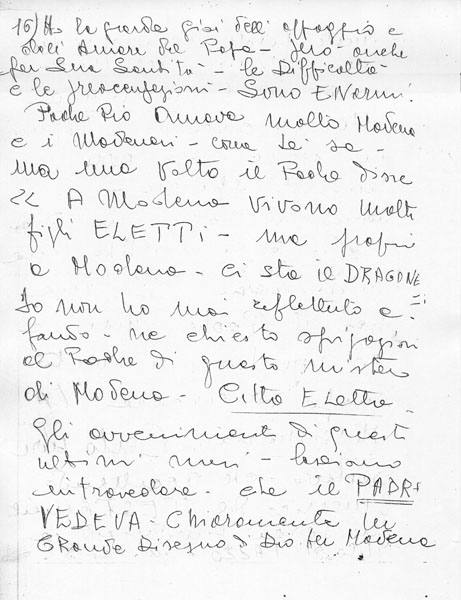 16) Ho la grande gioi dell'appoggio e
dell'Amore del Papa - però - anche
per Sua Santità - le Difficoltà
e le preoccupazioni - Sono ENormi!
Padre Pio Amava molto Modena
e i Modenesi - come Lei sa -
ma una Volta il Padre disse
<< A Modena Vivono molti
figli ELETTi - ma proprio
a Modena - ci sta il DRAGONE
Io non ho mai riflettuto a
fondo - ne chiesto spiegazioni
al Padre di questo mistero
di Modena - Citta Eletta -
Gli avvenimenti di questi
ultimi mesi - lasciano
intravedere - che il PADRe
VEDEVA - Chiaramente un
GRande Disegno di Dio per Modena